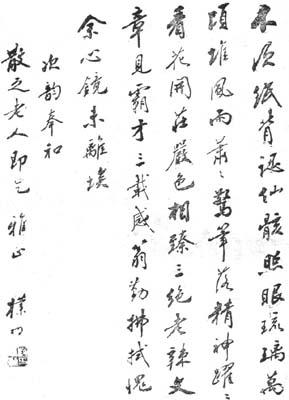 不須紙背認仙骸照眼琉璃萬
頃堆風雨蕭々驚筆落精神躍々
看花開莊嚴色相臻三絕老辣文
章見霸才三載感翁勤拂拭愧
余心鏡未離埃
次韻奉和
散之老人即乞 雅正 樸初